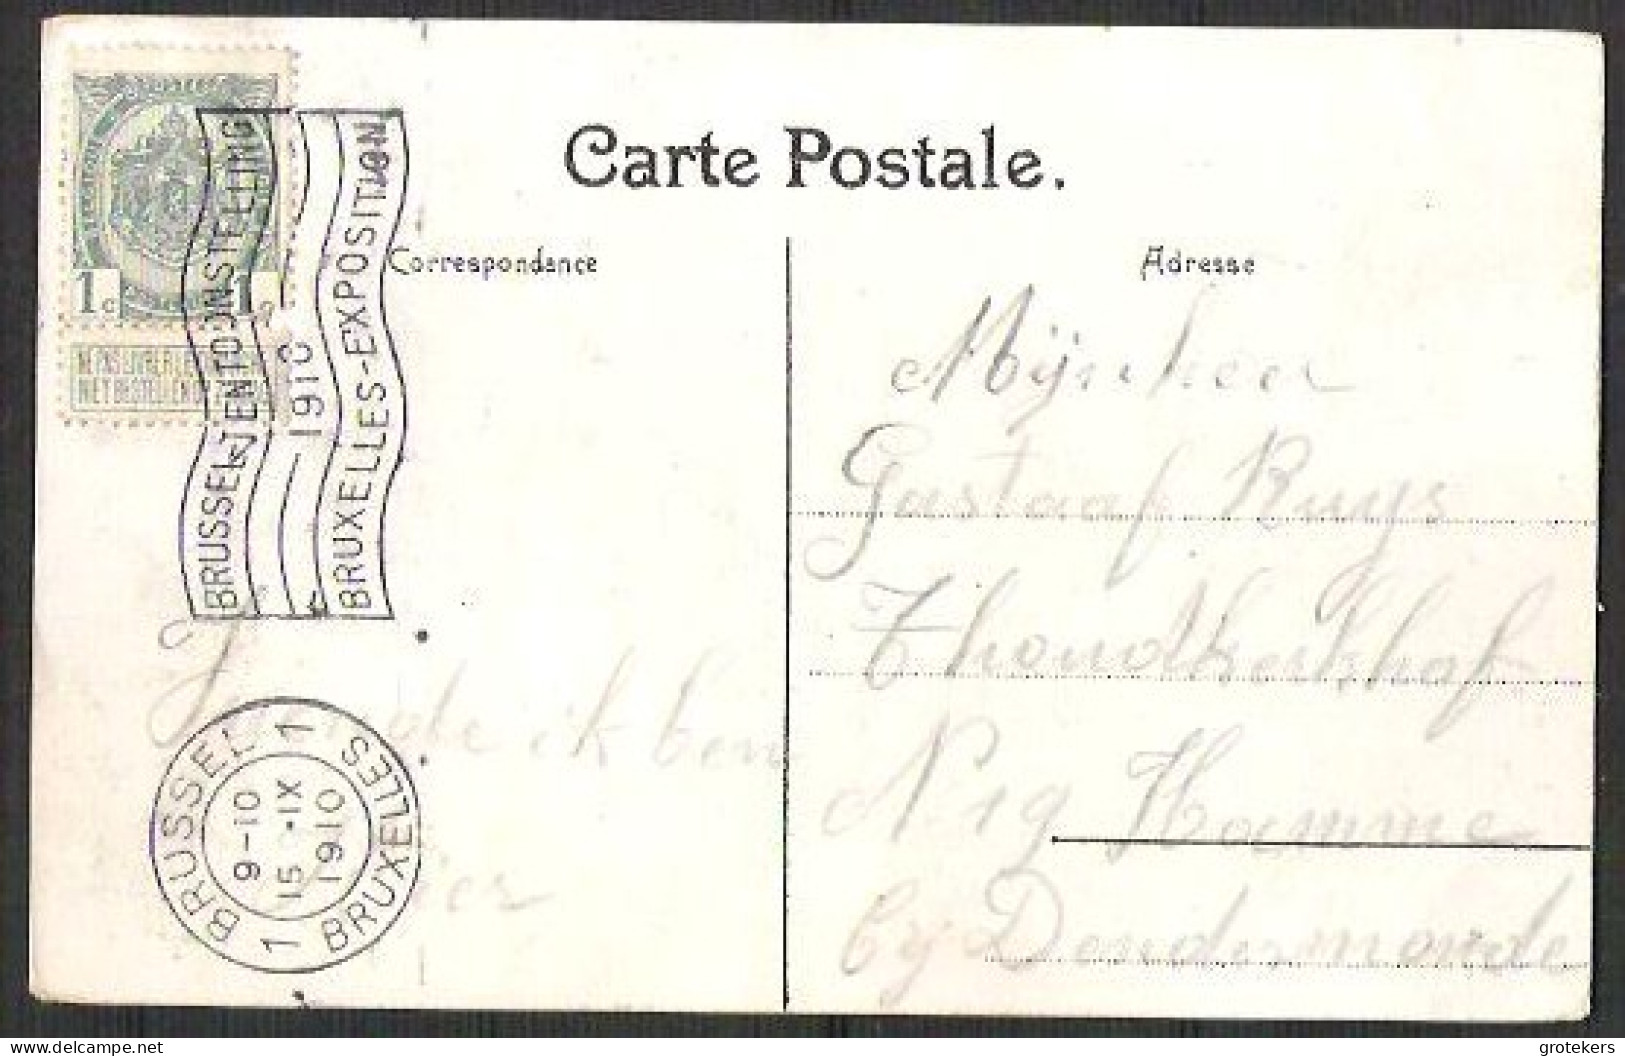 Carte Postale.
Correspondance
Adresse
1c 1c
NE PAS LIVRER LE
NIET BESTELLEN OP
BRUSSEL-TENTOONSTELLING
1910
BRUXELLES-EXPOSITION
ik ben
BRUSSEL 1 BRUXELLES 1
9-10
15 -IX
1910
Mijnheer
Gustaaf Ruys
N 19 Hamme
bij Dendermonde
delcampe.net
grotekers